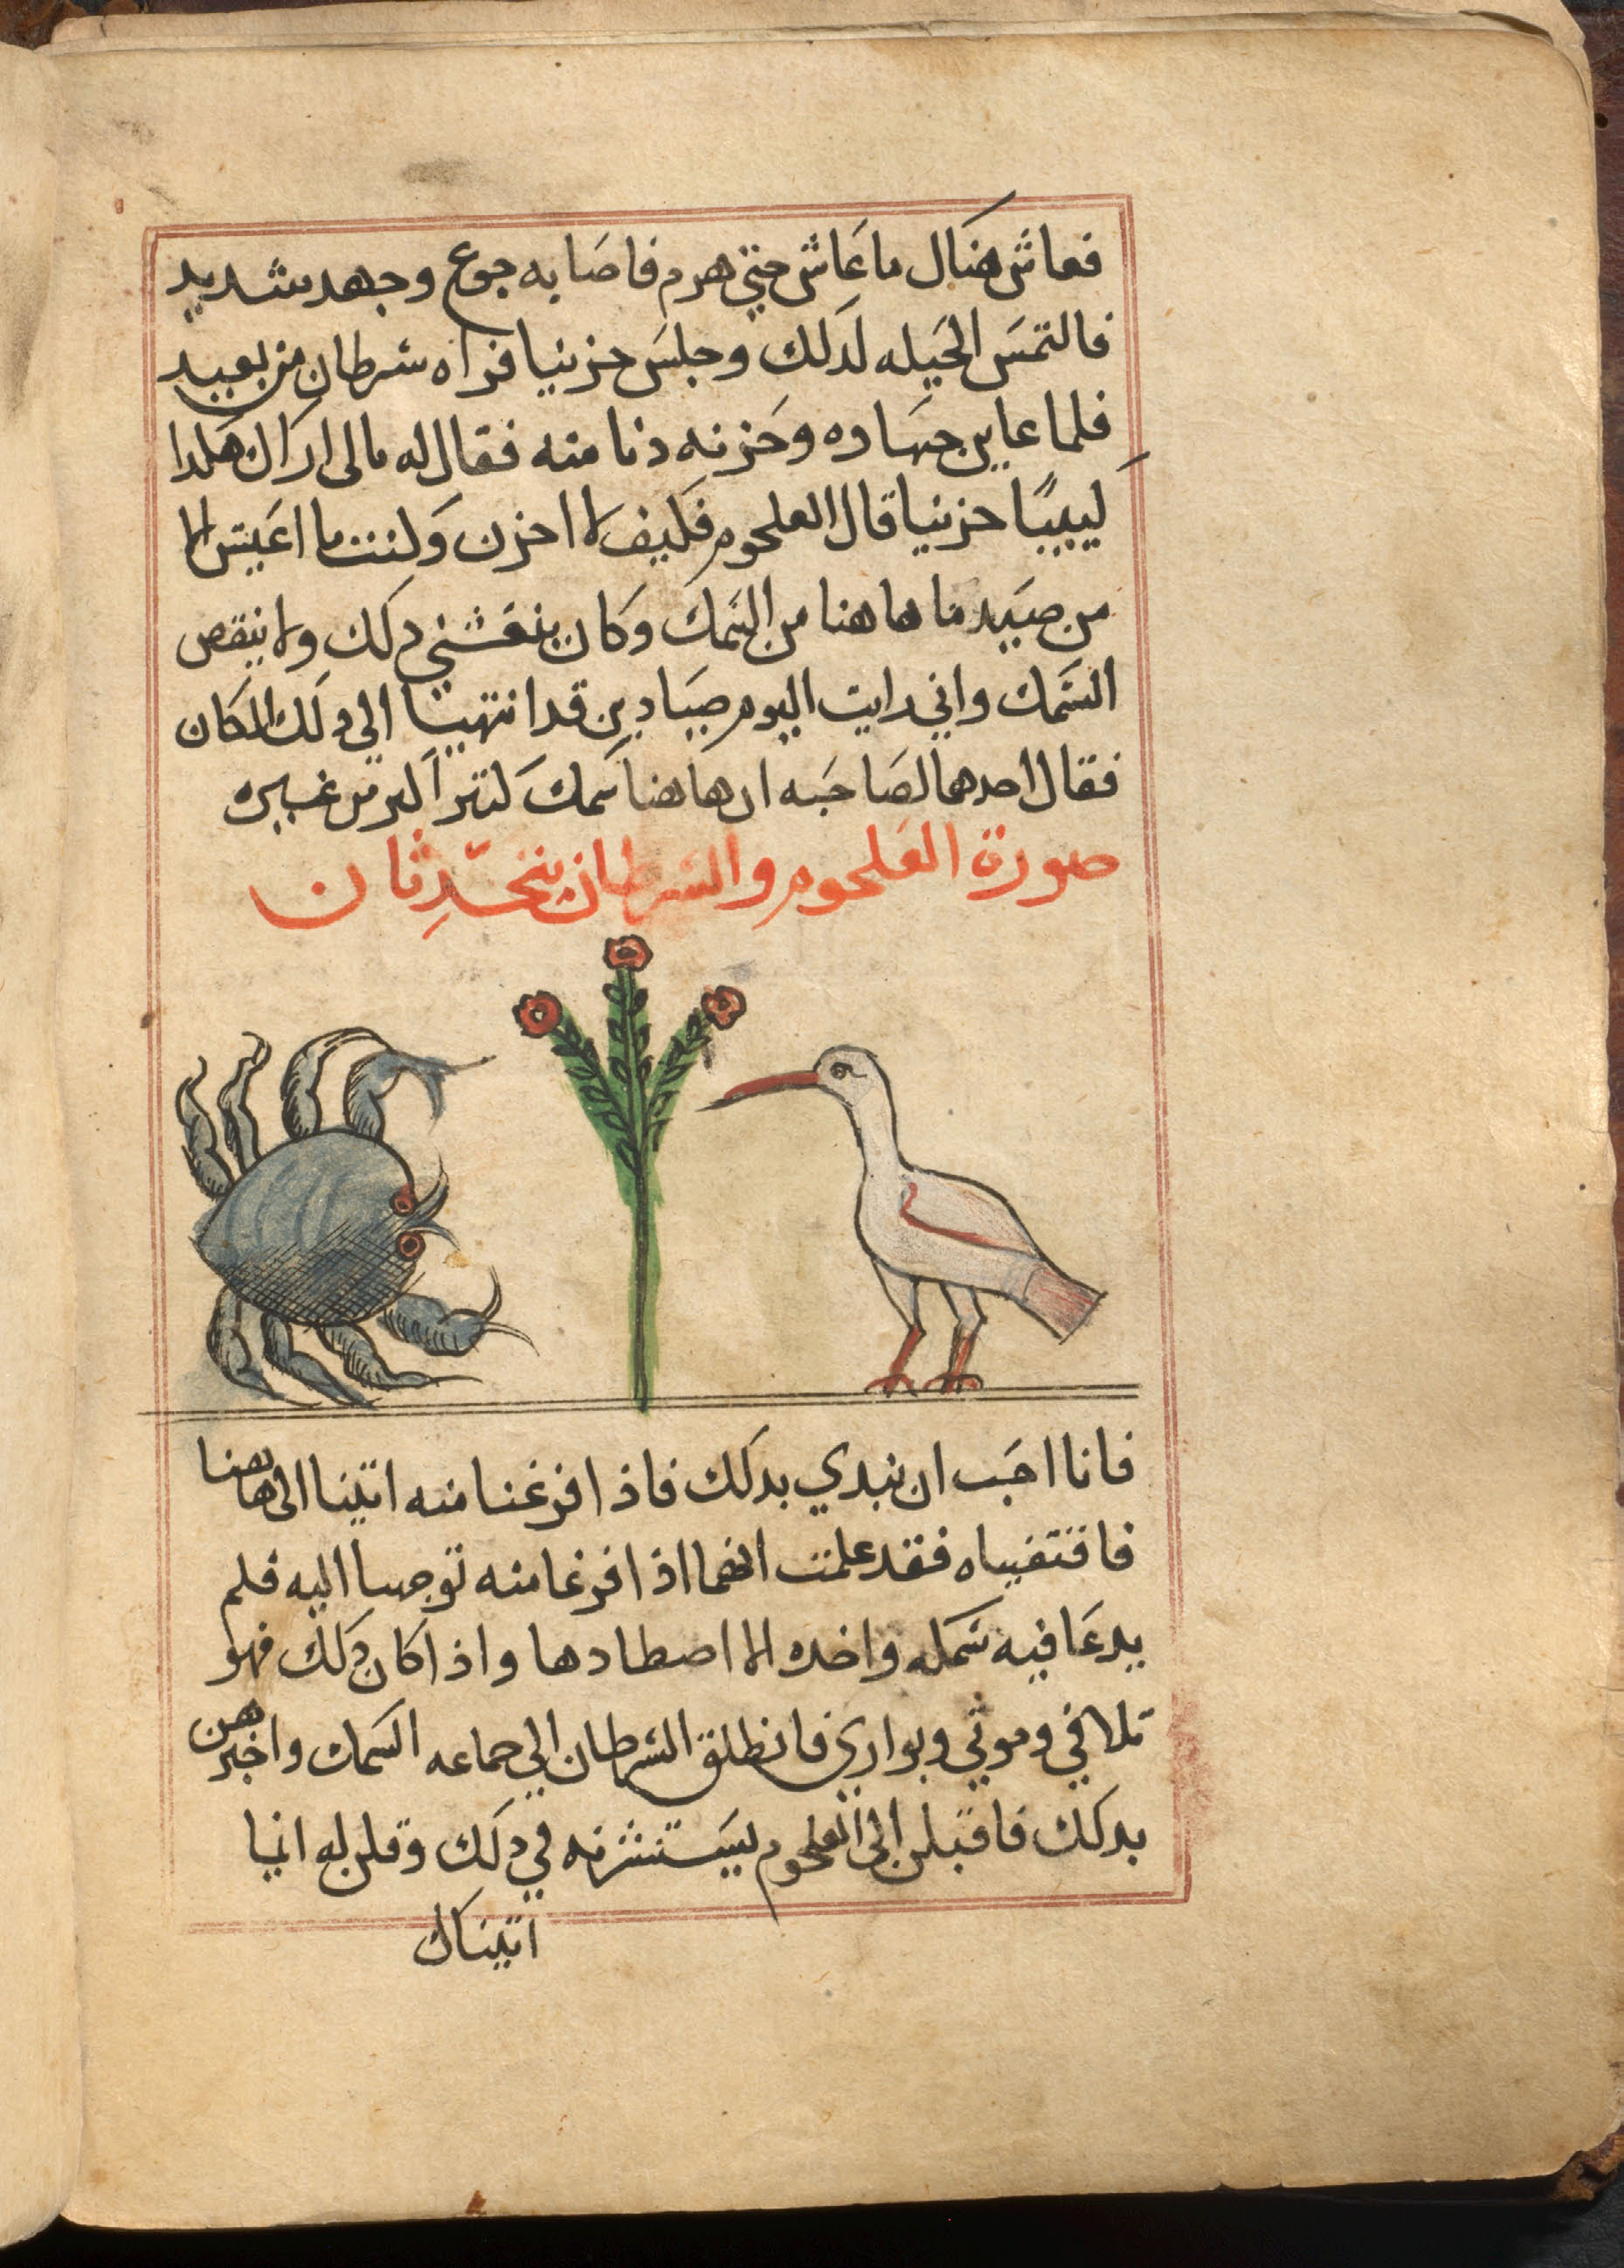 فعاش هناك ما عَاش حتي هرم فاصَابه جوع وجهد شديد
فالتمسَ الحَيله لدَلك وجلسَ حزينيا فراه سَرطان من بعيد
فلما عاين جهاده وحَزنه دنا منه فقال له مالى اراك هكدا
كَييبًا حزينيا قال العلجوم فكيف لا احزن وَكنت ما اعَيش الا
من صَيد ما هاهنا من السَمك وكان ينعَشني دلك ولا ينقص
السَمك واني رايت اليوم صيَادين قد انتهيا الي دلك المكان
فقال احدهما لصَاحبَه ان هاهنا سَمك كتير اكتر من غيره
صورة العَلجوم والسَرطان يتحَدِثان
فانا احَب ان نبدي بدلك فاذا فرغنا منه اتينا الى هاهنا
فافتفيناه فقد علمت انهما اذا فرغا منه توجها اليه فلم
يدعَا فيه سَمكه واحده الا اصطادها واذا كان دَلك فهو
تلافي وموتي وبواري فانطلق السَرطان الي جماعه السَمك واخبرهن
بدلك فاقبلن الى العلجوم ليسَتشرنه في دلك وقلن له انيا
اتيناك